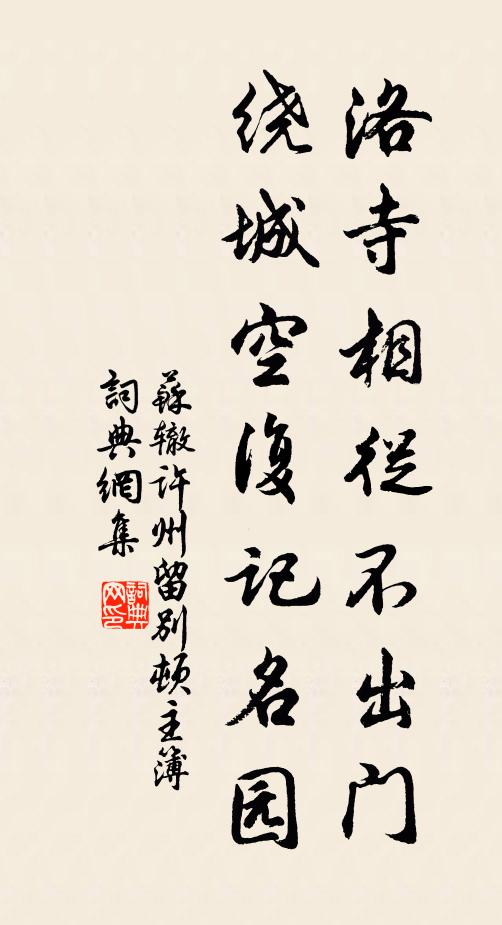 洛寺相從不出门
绕城空復记名园
蘇辙许州留别顿主簿
詞典網集
詞典
网印